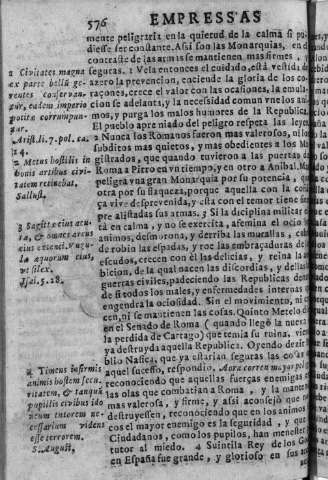 576 EMPRESSAS
mente peligraria en la quietud de la calma si pu-
diesse ser constante. Assi son las Monarquias, en el
contraste de las armas se mantienen mas firmes, y
seguras. 1 Vela entonces el cuidado, està vestida de
azero la prevencion, enciende la gloria de los co-
raçones, crece el valor con las ocasiones, la emula-
cion se adelanta, y la necesidad comun vne los ani-
mos, y purga los malos humores de la Republica.
El pueblo apremiado del peligro respeta las leyes
2 Nunca los Romanos fueron mas valerosos, ni los
subditos mas quietos, y mas obedientes a los Ma-
gistrados, que quando tuvieron a las puertas de
Roma a Pirro en vn tiempo, y en otro a Anibal. Mas
peligra vna gran Monarquia por su potencia, que
otra por su flaqueza, porque aquella con la
vive desprevenida, y esta con el temor tiene siem-
pre alistadas sus armas. 3 Si la disciplina militar es-
tà en calma, y no se exercita, afemina el ocio los
animos, desmorona, y derriba las murallas, cubre
de robin las espadas, y roe las embraçaduras de los
escudos, crecen con èl las delicias, y reina la am-
bicion, de la qual nacen las discordias, y de ellas las
guerras civiles, padeciendo las Republicas dentro
de si todos los males, y enfermedades internas que
engendra la ociosidad. Sin el movimiento, ni cre-
cen, ni se mantienen las cosas. Quinto Metelo dixo
en el Senado de Roma (quando llegò la nueva de
la perdida de Cartago) que temia su ruina, viendo
ya destruyda aquella Republica. Oyendo dezir Pu-
blio Nasica, que ya estarian seguras las cosas con
aquel sucesso, respondiò. Aora corren mayor peligro
reconociendo que aquellas fuerças enemigas eran
las olas que combatian a Roma, y la mantenian
mas valerosa, y firme, y assi aconsejò que no se
destruyessen, reconociendo que en los animos fla-
cos el mayor enemigo es la seguridad, y que los
Ciudadanos, como los pupilos, han menester por
tutor al miedo. 4 Suintila Rey de los Godos
en España fue grande, y glorioso en sus ac-
1 Civitates magna
ex parte bellũ ge-
rentes conservan-
tur, eædem imperio
potitæ corrumpun-
tur.
Arist. li. 7. pol. ca.
14.
2 Metus hostilis in
bonis artibus civi-
tatem retinebat.
Sallust.
3 Sagittæ eius acu-
tæ, & omnes arcus
eius extenti. Vngu-
læ equorum eius,
vt silex.
Isai. 5. 28.
4 Timens infirmis
animis hostem secu-
ritatem, & tanquã
pupillis civibus ido
neum tutorem ne-
cessarium videns
esse terrorem.
S. August.